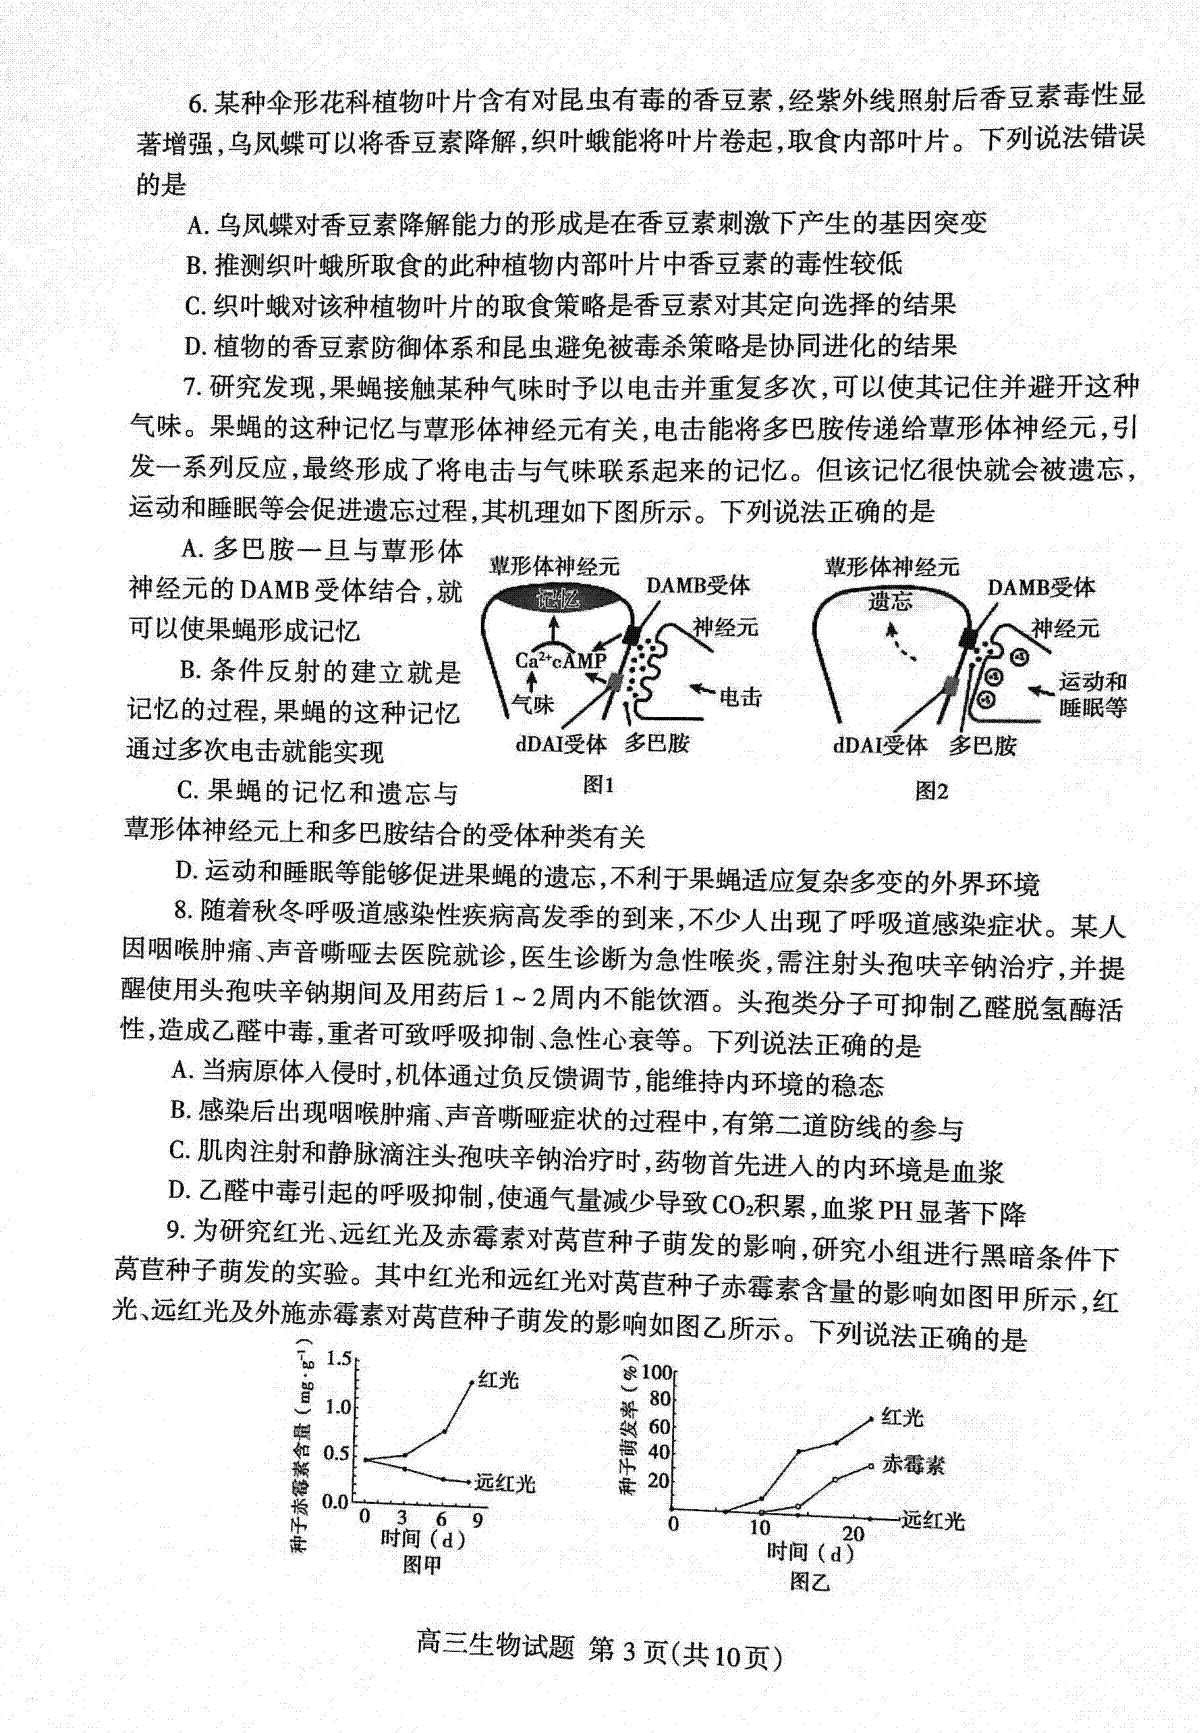 6. 某种伞形花科植物叶片含有对昆虫有毒的香豆素,经紫外线照射后香豆素毒性显
著增强,乌凤蝶可以将香豆素降解,织叶蛾能将叶片卷起,取食内部叶片。下列说法错误
的是
A. 乌凤蝶对香豆素降解能力的形成是在香豆素刺激下产生的基因突变
B. 推测织叶蛾所取食的此种植物内部叶片中香豆素的毒性较低
C. 织叶蛾对该种植物叶片的取食策略是香豆素对其定向选择的结果
D. 植物的香豆素防御体系和昆虫避免被毒杀策略是协同进化的结果
7. 研究发现,果蝇接触某种气味时予以电击并重复多次,可以使其记住并避开这种
气味。果蝇的这种记忆与蕈形体神经元有关,电击能将多巴胺传递给蕈形体神经元,引
发一系列反应,最终形成了将电击与气味联系起来的记忆。但该记忆很快就会被遗忘,
运动和睡眠等会促进遗忘过程,其机理如下图所示。下列说法正确的是
A. 多巴胺一旦与蕈形体
神经元的DAMB受体结合,就
可以使果蝇形成记忆
B. 条件反射的建立就是
记忆的过程,果蝇的这种记忆
通过多次电击就能实现
C. 果蝇的记忆和遗忘与
蕈形体神经元上和多巴胺结合的受体种类有关
蕈形体神经元
记忆
DAMB受体
神经元
Ca²⁺cAMP
气味
电击
dDAI受体 多巴胺
图1
蕈形体神经元
遗忘
DAMB受体
神经元
运动和
睡眠等
dDAI受体 多巴胺
图2
D. 运动和睡眠等能够促进果蝇的遗忘,不利于果蝇适应复杂多变的外界环境
8. 随着秋冬呼吸道感染性疾病高发季的到来,不少人出现了呼吸道感染症状。某人
因咽喉肿痛、声音嘶哑去医院就诊,医生诊断为急性喉炎,需注射头孢呋辛钠治疗,并提
醒使用头孢呋辛钠期间及用药后1~2周内不能饮酒。头孢类分子可抑制乙醛脱氢酶活
性,造成乙醛中毒,重者可致呼吸抑制、急性心衰等。下列说法正确的是
A. 当病原体入侵时,机体通过负反馈调节,能维持内环境的稳态
B. 感染后出现咽喉肿痛、声音嘶哑症状的过程中,有第二道防线的参与
C. 肌肉注射和静脉滴注头孢呋辛钠治疗时,药物首先进入的内环境是血浆
D. 乙醛中毒引起的呼吸抑制,使通气量减少导致CO₂积累,血浆PH显著下降
9. 为研究红光、远红光及赤霉素对莴苣种子萌发的影响,研究小组进行黑暗条件下
莴苣种子萌发的实验。其中红光和远红光对莴苣种子赤霉素含量的影响如图甲所示,红
光、远红光及外施赤霉素对莴苣种子萌发的影响如图乙所示。下列说法正确的是
种子赤霉素含量(mg·g⁻¹)
1.5
1.0
0.5
0.0
0 3 6 9
红光
远红光
时间(d)
图甲
种子萌发率(%)
100
80
60
40
20
0 10 20
红光
赤霉素
远红光
时间(d)
图乙
高三生物试题 第3页(共10页)